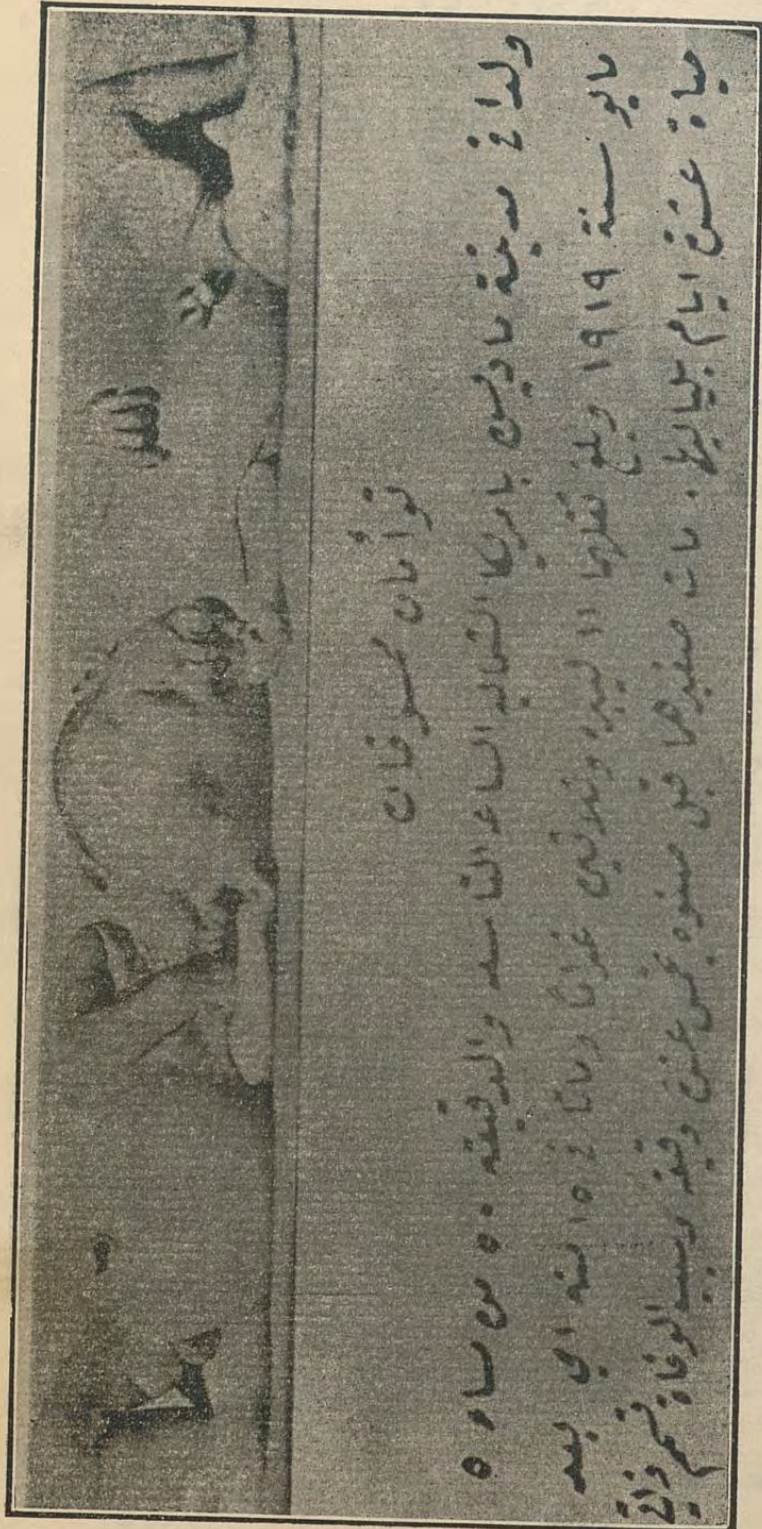 توأمان محسوفان
ولدا في مدينة ماديسن بامريكا الشمالية الساعة التاسعة والدقيقة ٥٠ من مساء ٥
مايو سنة ١٩١٩ وبلغ ثقلهما ١١ ليبره وثلاثين غراماً وماتا في ١٥ منه اي بعد
حياة عشرة ايام بلياليها. مات صغيرهما قبل صنوه بخمس عشرة دقيقة وسبب الوفاة تسمم ذاتي